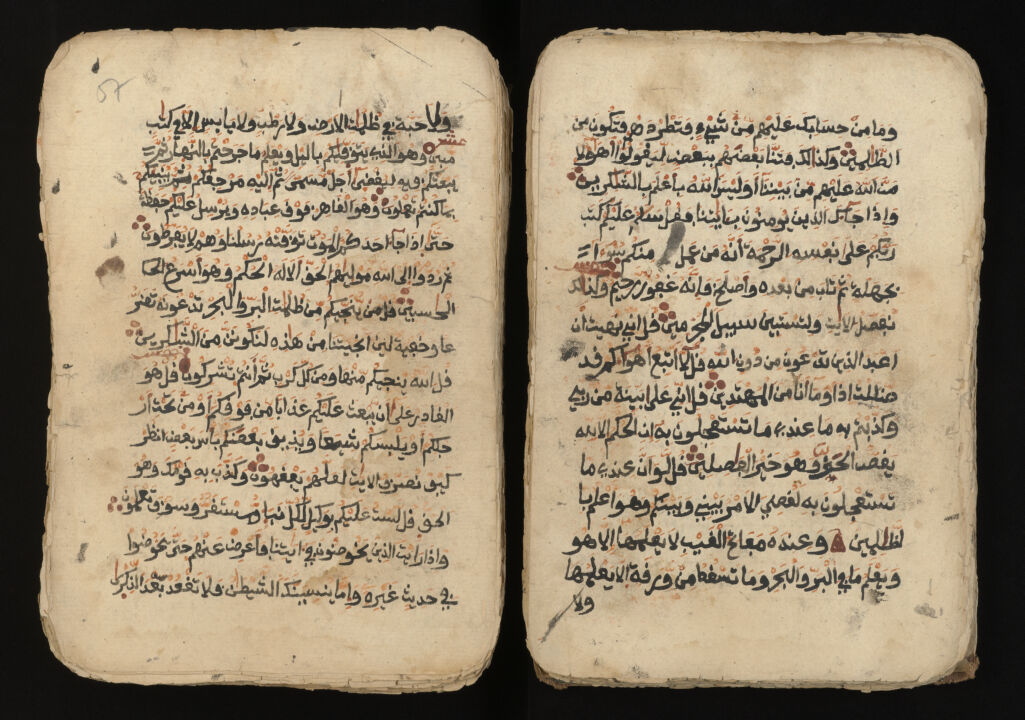 وما من حسابك عليهم من شيء فتطردهم فتكون من
الظلمين وكذالك فتنا بعضهم ببعض ليقولوا أهؤلا
من الله عليهم من بيننا أوليس الله بأعلم بالشكرين
وإذا جاك الذين يومنون بايتنا فقل سلم عليكم كتب
ربكم على نفسه الرحمة أنه من عمل منكم سوءا
بجهلة ثم تاب من بعده وأصلح فإنه غفور رحيم وكذلك
نفصل الايت ولتستبين سبيل المجرمين قل اني نهيت أن
اعبد الذين تدعون من دون الله قل لا اتبع أهواكم قد
ضللت اذا وما أنا من المهتدين قل اني على بينة من ربي
وكذبتم به ما عندي ما تستعجلون به ان الحكم الا لله
يقص الحق وهو خير الفصلين قل لو ان عندي ما
تستعجلون به لقضي الامر بيني وبينكم وهو اعلم با
لظلمين وعنده مفاتح الغيب لا يعلمها الا هو
ويعلم ما في البر والبحر وما تسقط من ورقة الا يعلمها
ولا
57
ولا حبة في ظلمت الارض ولا رطب ولا يابس الا في كتب
مبين وهو الذي يتوفيكم باليل ويعلم ما جرحتم بالنهار ثم
يبعثكم فيه ليقضى أجل مسمى ثم اليه مرجعكم ثم ينبئكم
بما كنتم تعملون وهو القاهر فوق عباده ويرسل عليكم حفظة
حتى اذا جا احدكم الموت توفته رسلنا وهم لا يفرطون
ثم ردوا الى الله موليهم الحق الا له الحكم وهو أسرع الحا
الحسبين قل من ينجيكم من ظلمت البر والبحر تدعونه تضر
عا وخفية لين انجيتنا من هذه لنكونن من الشكرين
قل الله ينجيكم منها ومن كل كرب ثم أنتم تشركون قل هو
القادر على ان يبعث عليكم عذابا من فوقكم أو من تحت أر
جلكم أو يلبسكم شيعا ويذيق بعضكم بأس بعض انظر
كيف نصرف الايت لعلهم يفقهون وكذب به قومك وهو
الحق قل لست عليكم بوكيل لكل نبإ مستقر وسوف تعلمون
واذا رايت الذين يخوضون في ايتنا فأعرض عنهم حتى يخوضوا
في حديث غيره واما ينسينك الشيطن فلا تقعد بعد الذكرى